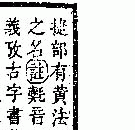 提部有黃法
之名註㲠音
義攷古字書